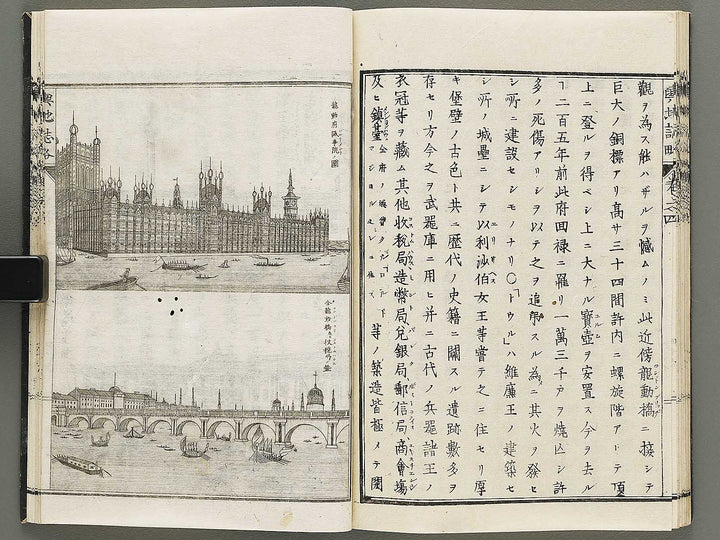 觀ヲ為ス能ハザルヲ憾ムノミ此近傍龍動橋ニ接シテ
巨大ノ銅標アリ高サ三十四間許内ニ螺旋階アリテ頂
上ニ登ルヲ得ベシ上ニ大ナル寶壺ヲ安置ス今ヲ去ル
丁二百五年前此府回禄ニ罹リ一萬三千戸ヲ燒亡シ許
多ノ死傷アリシヲ以テ之ヲ追弔スル為ニ其火ヲ發セ
シ所ニ建設セシモノナリ〇「トウル」ハ維廉王ノ建築セ
シ所ノ城壘ニシテ以利沙伯女王等嘗テ之ニ住セリ厚
キ堡壁ノ古色ト共ニ歴代ノ史籍ニ關スル遺跡數多ヲ
存セリ方今之ヲ武噐庫ニ用ヒ并ニ古代ノ兵噐諸王ノ
衣冠等ヲ藏ム其他收税局造幣局兌銀局郵信局商會塲
及ヒ鎮臺 等ノ築造皆極メテ閎
輿地誌略
卷之四
龍動府議事院ノ圖
輿地誌略